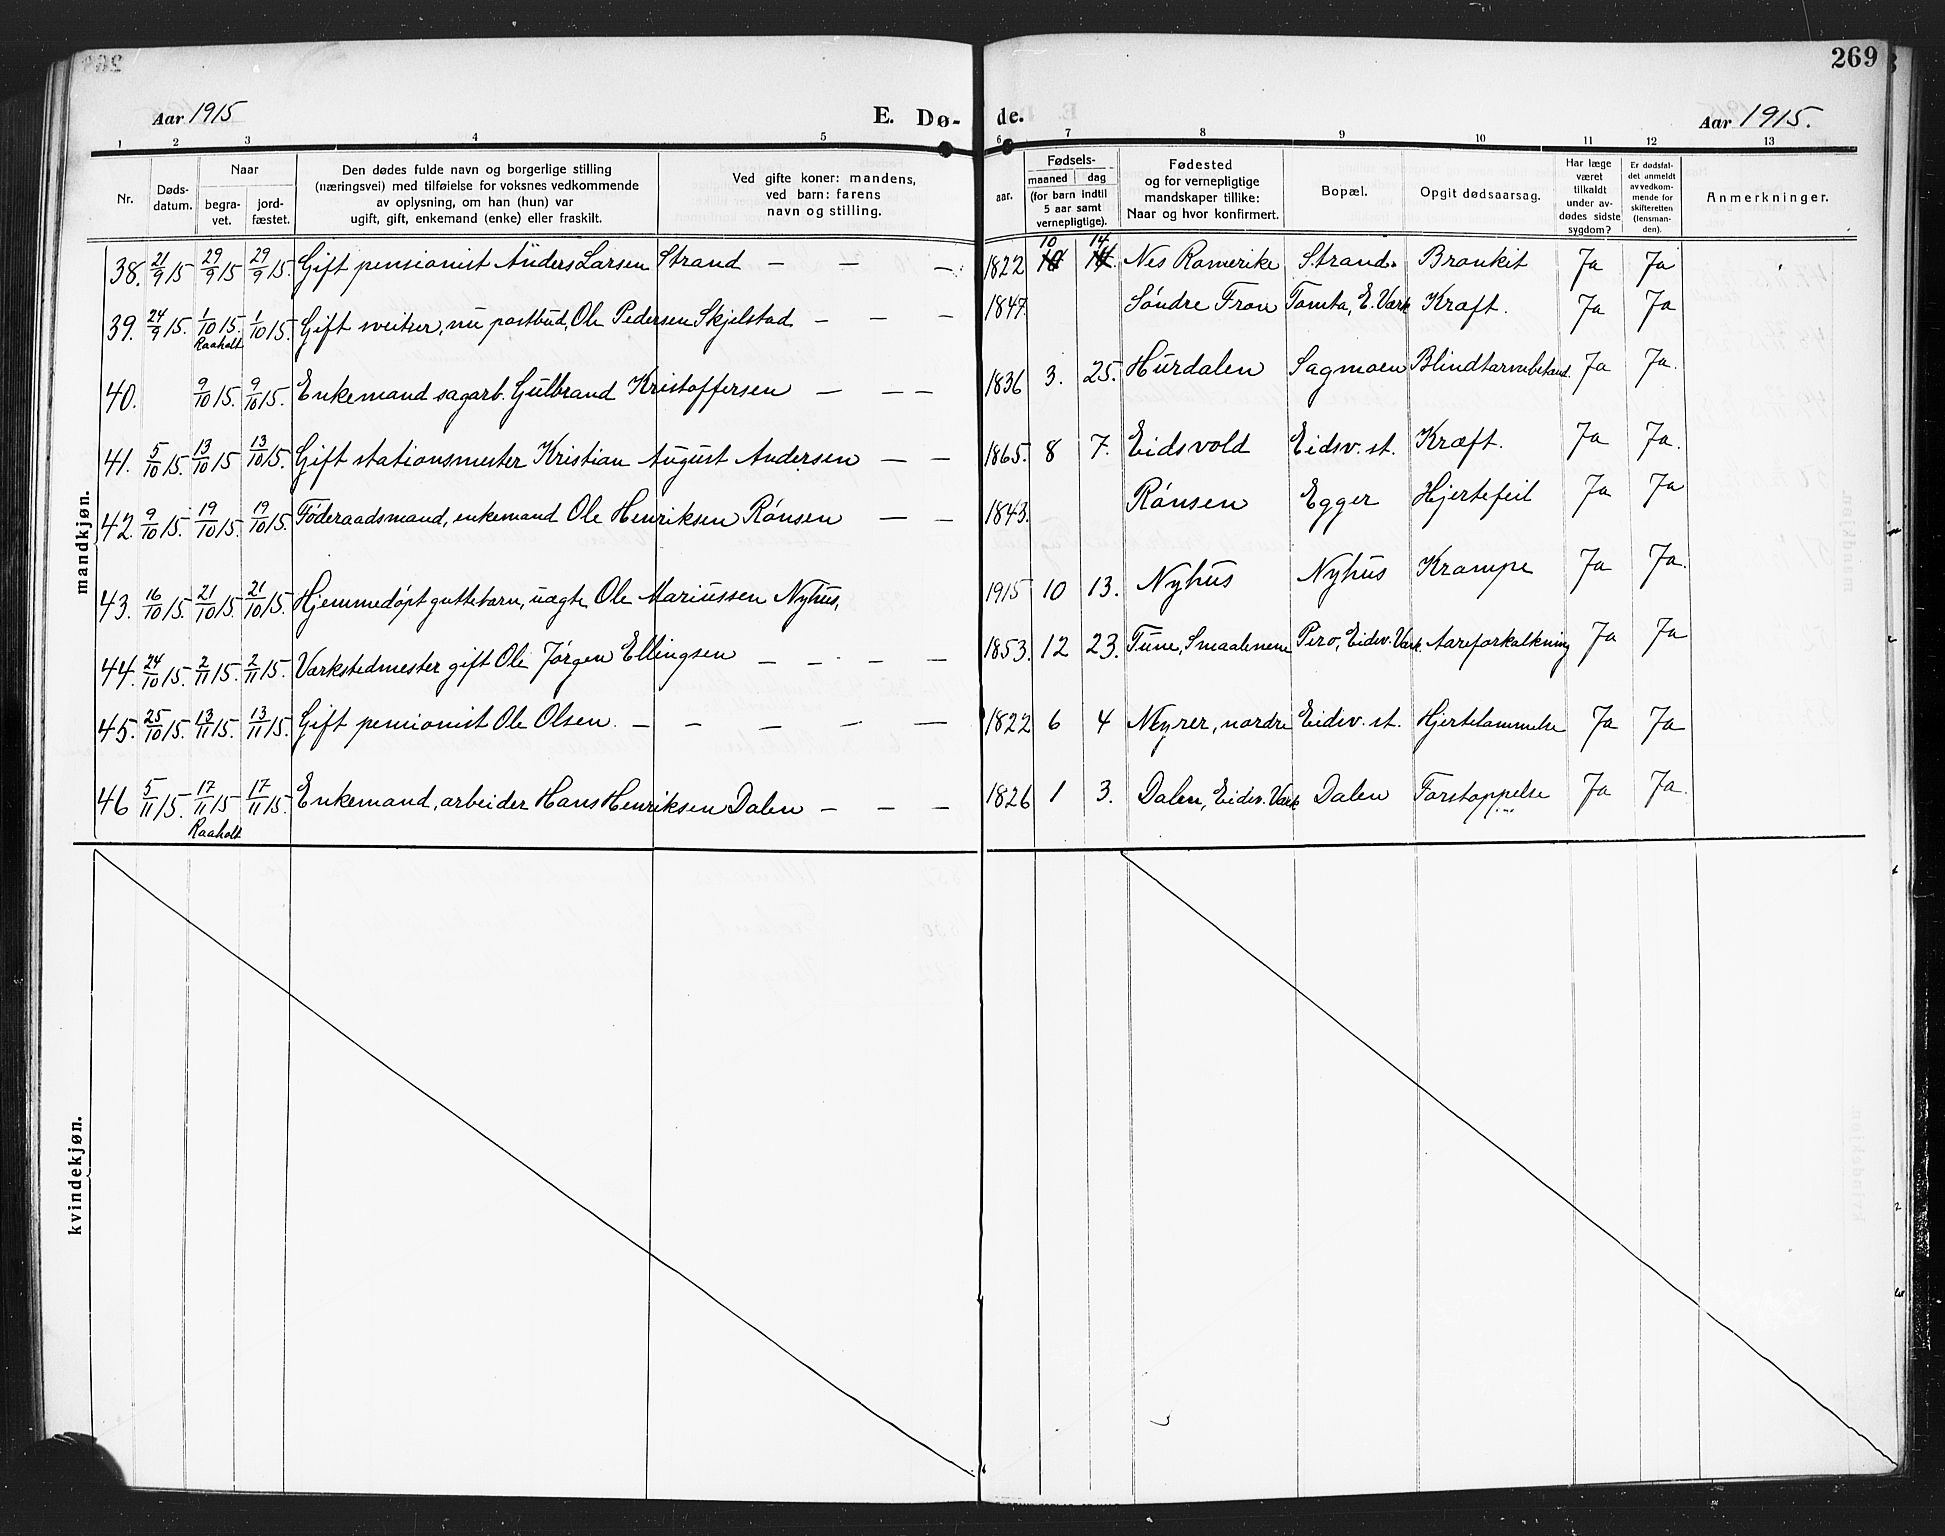 269
Aar 1915 E. Dø- de. Aar 1915.
1 2 3 4 5 6 7 8 9 10 11 12 13
Nr. Døds-datum. Naar begra-vet. jord-fæstet. Den dødes fulde navn og borgerlige stilling (næringsvei) med tilføielse for voksnes vedkommende av oplysning, om han (hun) var ugift, gift, enkemand (enke) eller fraskilt. Ved gifte koner: mandens, ved barn: farens navn og stilling. aar. Fødsels- maaned dag (for barn indtil 5 aar samt vernepligtige). Fødested og for vernepligtige mandskaper tillike: Naar og hvor konfirmert. Bopæl. Opgit dødsaarsag. Har læge været tilkaldt under av-dødes sidste sygdom? Er dødsfal-det anmeldt av vedkom-mende for skifteretten (lensman-den). Anmerkninger.
mandkjøn.
38. 21/9 15 29/9 15 29/9 15. Gift pensionist Anders Larsen Strand — — — 1822 10 14. Nes Romerike Strand. Bronkit Ja Ja
39. 24/9 15. 1/10 15. Raaholt 1/10 15. Gift sveitser, nu postbud, Ole Pedersen Skjelstad — — — 1847. Søndre Fron Tomta, E. Værk Kræft. Ja Ja
40. 9/10 15. 9/10 15. Enkemand sagarb. Gulbrand Kristoffersen — — — 1836 3. 25. Hurdalen Sagmoen Blindtarmbetænd. Ja Ja.
41. 5/10 15. 13/10 15 13/10 15. Gift stationsmester Kristian August Andersen — — 1865. 8 7. Eidsvold Eidsv. st. Kræft. Ja Ja.
42. 9/10 15. 19/10 15. 19/10 15. Føderaadsmand, enkemand Ole Henriksen Rønsen — — 1843. Rønsen Egger Hjertefeil Ja Ja
43. 16/10 15. 21/10 15. 21/10 15. Hjemmedøpt guttebarn, uægte Ole Mariussen Nyhus, 1915 10 13. Nyhus Nyhus Krampe Ja Ja.
44. 24/10 15. 2/11 15. 2/11 15. Værkstedmester gift Ole Jørgen Ellingsen — — — — 1853. 12 23. Tune, Smaalenene Pero, Eidsv. Værk. Aareforkalkning Ja Ja
45. 25/10 15. 13/11 15. 13/11 15. Gift pensionist Ole Olsen. — — — — — 1822 6 4 , nordre Eidsv. st. Hjertelammelse Ja Ja
46 5/11 15. 17/11 15 Raaholt 17/11 15. Enkemand, arbeider Hans Henriksen Dalen — — — 1826 1 3. Dalen, Eidsv. Værk Dalen Forstoppelse Ja Ja.
kvindekjøn.